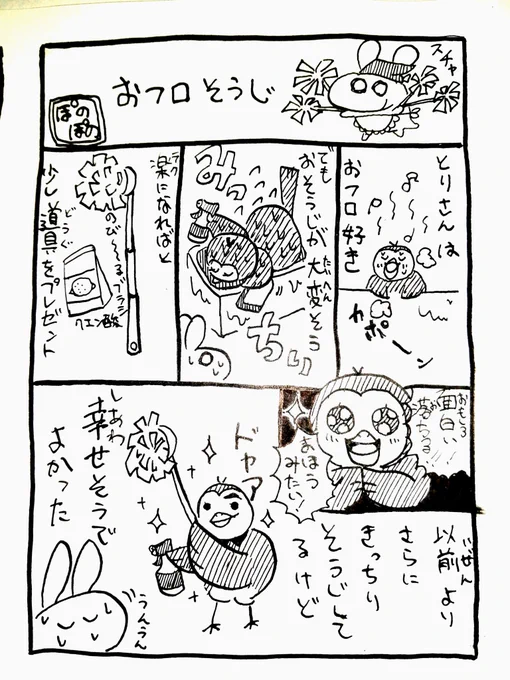 おフロそうじ
スチャ
ぽの
ぽの
とりさんは
おフロ好き
カポーン
でも
おそうじが大変そう
たいへん
みっ
ちぃ
楽になればと
ラク
のび～るブラシ
クエン酸
少し道具をプレゼント
どうぐ
面白い
おもしろ
落ちる
まほう
みたい!
以前より
いぜん
さらに
きっちり
そうじして
るけど
ドヤア
幸せそうで
しあわ
よかった
うんうん